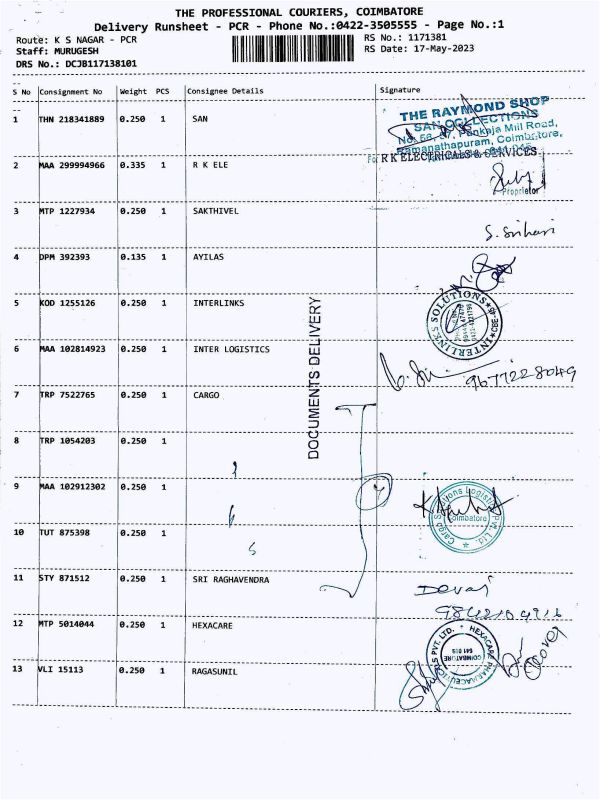 THE PROFESSIONAL COURIERS, COIMBATORE
Delivery Runsheet - PCR - Phone No.:0422-3505555 - Page No.:1
Route: K S NAGAR - PCR
Staff: MURUGESH
DRS No.: DCJB117138101
RS No.: 1171381
RS Date: 17-May-2023
S No Consignment No Weight PCS Consignee Details Signature
1 THN 218341889 0.250 1 SAN
THE RAYMOND SHOP
SAN COLLECTIONS
Pankaja Mill Road,
Ramanathapuram, Coimbatore,
2 MAA 299994966 0.335 1 R K ELE
For R K ELECTRICALS & SERVICES
Proprietor
3 MTP 1227934 0.250 1 SAKTHIVEL
S. Srihari
4 DPM 392393 0.135 1 AYILAS
5 KOD 1255126 0.250 1 INTERLINKS
INTERLINK SOLUTIONS
DOCUMENTS DELIVERY
6 MAA 102814923 0.250 1 INTER LOGISTICS
9677228049
7 TRP 7522765 0.250 1 CARGO
8 TRP 1054203 0.250 1
9 MAA 102912302 0.250 1
Cargo Solutions Logistics Pvt. Ltd.
Coimbatore
10 TUT 875398 0.250 1
11 STY 871512 0.250 1 SRI RAGHAVENDRA
Devaj
12 MTP 5014044 0.250 1 HEXACARE
HEXACARE PHARMACEUTICALS PVT. LTD.
COIMBATORE
641 015
13 VLI 15113 0.250 1 RAGASUNIL